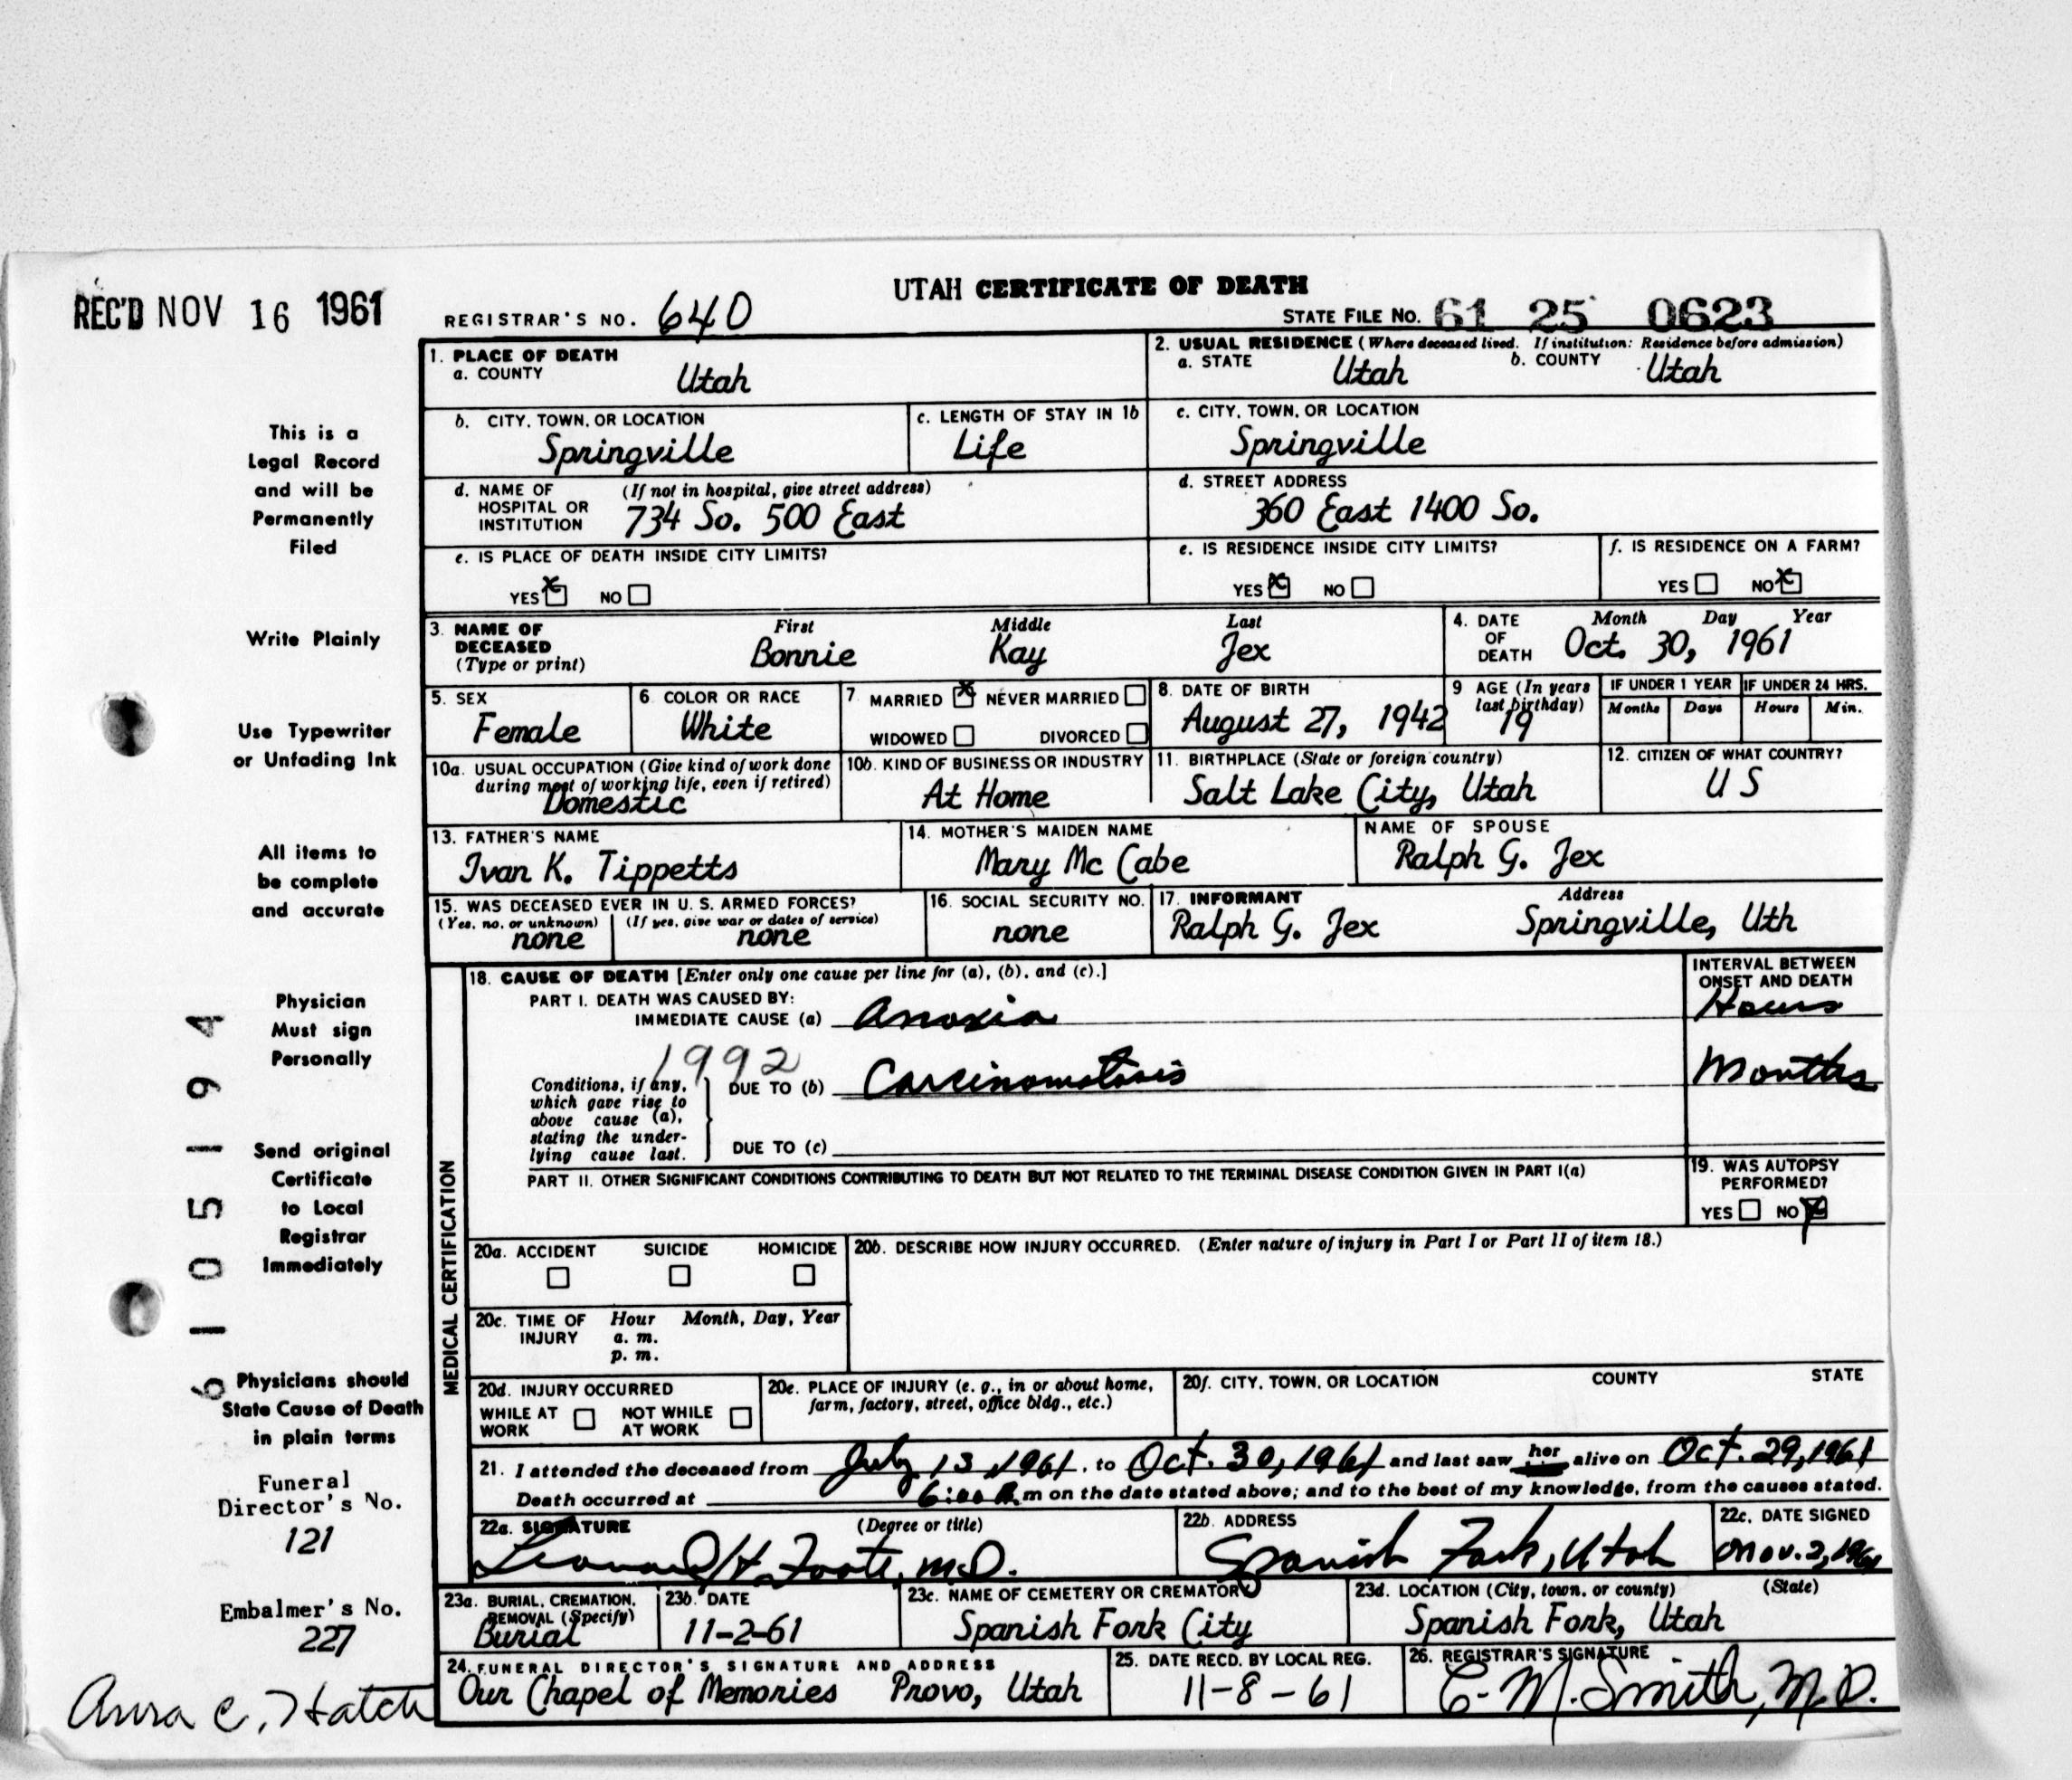 UTAH CERTIFICATE OF DEATH
REC'D NOV 16 1961
REGISTRAR'S NO. 640
STATE FILE No. 61 25 0623
1. PLACE OF DEATH
a. COUNTY
Utah
2. USUAL RESIDENCE (Where deceased lived. If institution: Residence before admission)
a. STATE Utah b. COUNTY Utah
b. CITY, TOWN, OR LOCATION
Springville
c. LENGTH OF STAY IN 1b
Life
c. CITY, TOWN, OR LOCATION
Springville
d. NAME OF HOSPITAL OR INSTITUTION (If not in hospital, give street address)
734 So. 500 East
d. STREET ADDRESS
360 East 1400 So.
e. IS PLACE OF DEATH INSIDE CITY LIMITS?
YES x NO
e. IS RESIDENCE INSIDE CITY LIMITS?
YES x NO
f. IS RESIDENCE ON A FARM?
YES NO x
3. NAME OF DECEASED (Type or print)
First Middle Last
Bonnie Kay Jex
4. DATE OF DEATH Month Day Year
Oct. 30, 1961
5. SEX
Female
6 COLOR OR RACE
White
7 MARRIED x NEVER MARRIED
WIDOWED DIVORCED
8. DATE OF BIRTH
August 27, 1942
9 AGE (In years last birthday)
19
IF UNDER 1 YEAR IF UNDER 24 HRS.
Months Days Hours Min.
10a. USUAL OCCUPATION (Give kind of work done during most of working life, even if retired)
Domestic
10b. KIND OF BUSINESS OR INDUSTRY
At Home
11. BIRTHPLACE (State or foreign country)
Salt Lake City, Utah
12. CITIZEN OF WHAT COUNTRY?
U S
13. FATHER'S NAME
Ivan K. Tippetts
14. MOTHER'S MAIDEN NAME
Mary Mc Cabe
NAME OF SPOUSE
Ralph G. Jex
15. WAS DECEASED EVER IN U. S. ARMED FORCES?
(Yes, no, or unknown) (If yes, give war or dates of service)
none none
16. SOCIAL SECURITY NO.
none
17. INFORMANT Address
Ralph G. Jex Springville, Uth
MEDICAL CERTIFICATION
18. CAUSE OF DEATH [Enter only one cause per line for (a), (b), and (c).]
INTERVAL BETWEEN ONSET AND DEATH
PART I. DEATH WAS CAUSED BY:
IMMEDIATE CAUSE (a) Anoxia Hours
1992
Conditions, if any, which gave rise to above cause (a), stating the underlying cause last.
DUE TO (b) Carcinomatosis Months
DUE TO (c)
PART II. OTHER SIGNIFICANT CONDITIONS CONTRIBUTING TO DEATH BUT NOT RELATED TO THE TERMINAL DISEASE CONDITION GIVEN IN PART I(a)
19. WAS AUTOPSY PERFORMED?
YES NO x
20a. ACCIDENT SUICIDE HOMICIDE
20b. DESCRIBE HOW INJURY OCCURRED. (Enter nature of injury in Part I or Part II of item 18.)
20c. TIME OF INJURY Hour Month, Day, Year
a. m.
p. m.
20d. INJURY OCCURRED
WHILE AT WORK NOT WHILE AT WORK
20e. PLACE OF INJURY (e. g., in or about home, farm, factory, street, office bldg., etc.)
20f. CITY, TOWN, OR LOCATION COUNTY STATE
21. I attended the deceased from July 13, 1961, to Oct. 30, 1961 and last saw her alive on Oct. 29, 1961
Death occurred at 6:00 A.m on the date stated above; and to the best of my knowledge, from the causes stated.
22a. SIGNATURE (Degree or title)
Leonard H. Foote, M.D.
22b. ADDRESS
Spanish Fork, Utah
22c. DATE SIGNED
Nov. 2, 1961
23a. BURIAL, CREMATION, REMOVAL (Specify)
Burial
23b. DATE
11-2-61
23c. NAME OF CEMETERY OR CREMATORY
Spanish Fork City
23d. LOCATION (City, town, or county) (State)
Spanish Fork, Utah
24. FUNERAL DIRECTOR'S SIGNATURE AND ADDRESS
Our Chapel of Memories Provo, Utah
25. DATE RECD. BY LOCAL REG.
11-8-61
26. REGISTRAR'S SIGNATURE
C. M. Smith, M.D.
This is a
Legal Record
and will be
Permanently
Filed
Write Plainly
Use Typewriter
or Unfading Ink
All items to
be complete
and accurate
Physician
Must sign
Personally
Send original
Certificate
to Local
Registrar
Immediately
Physicians should
State Cause of Death
in plain terms
Funeral
Director's No.
121
Embalmer's No.
227
Anna C. Hatch
6105194